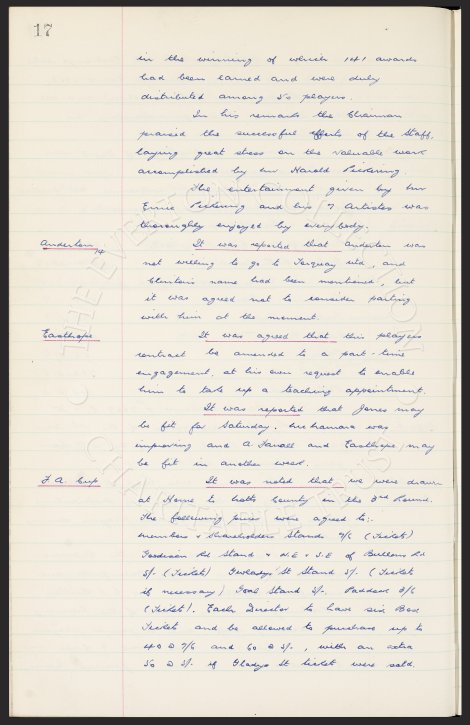 17
in the winning of which 141 awards
had been earned and were duly
distributed among 50 players.
In his remarks the Chairman
praised the successful efforts of the Staff,
laying great stress on the valuable work
accomplished by Mr Harold Pickering.
The entertainment given by Mr
Ernie Pickering and his 7 Artistes was
thoroughly enjoyed by everybody.
Anderton It was reported that Anderton was
not willing to go to Torquay Utd., and
Clinton's name had been mentioned, but
it was agreed not to consider parting
with him at the moment.
Easthope It was agreed that this players
contract be amended to a part-time
engagement, at his own request to enable
him to take up a teaching appointment.
It was reported that Jones may
be fit for Saturday. McNamara was
improving and A Farrall and Easthope, may
be fit in another week.
F.A. Cup It was noted that we were drawn
at Home to Notts County in the 3rd Round.
The following prices were agreed to:-
Members & Shareholders Stands 7/6 (Tickets)
Goodison Rd Stand & N.E & S.E of Bullens Rd
5/- (Tickets) Gwladys St Stand 5/- (Tickets
if necessary) Goal Stand 5/-. Paddock 3/6
(Tickets). Each Director to have six Box
Tickets and be allowed to purchase up to
40 @ 7/6 and 60 @ 5/-, with an extra
50 @ 5/- if Gladys St ticket were sold.